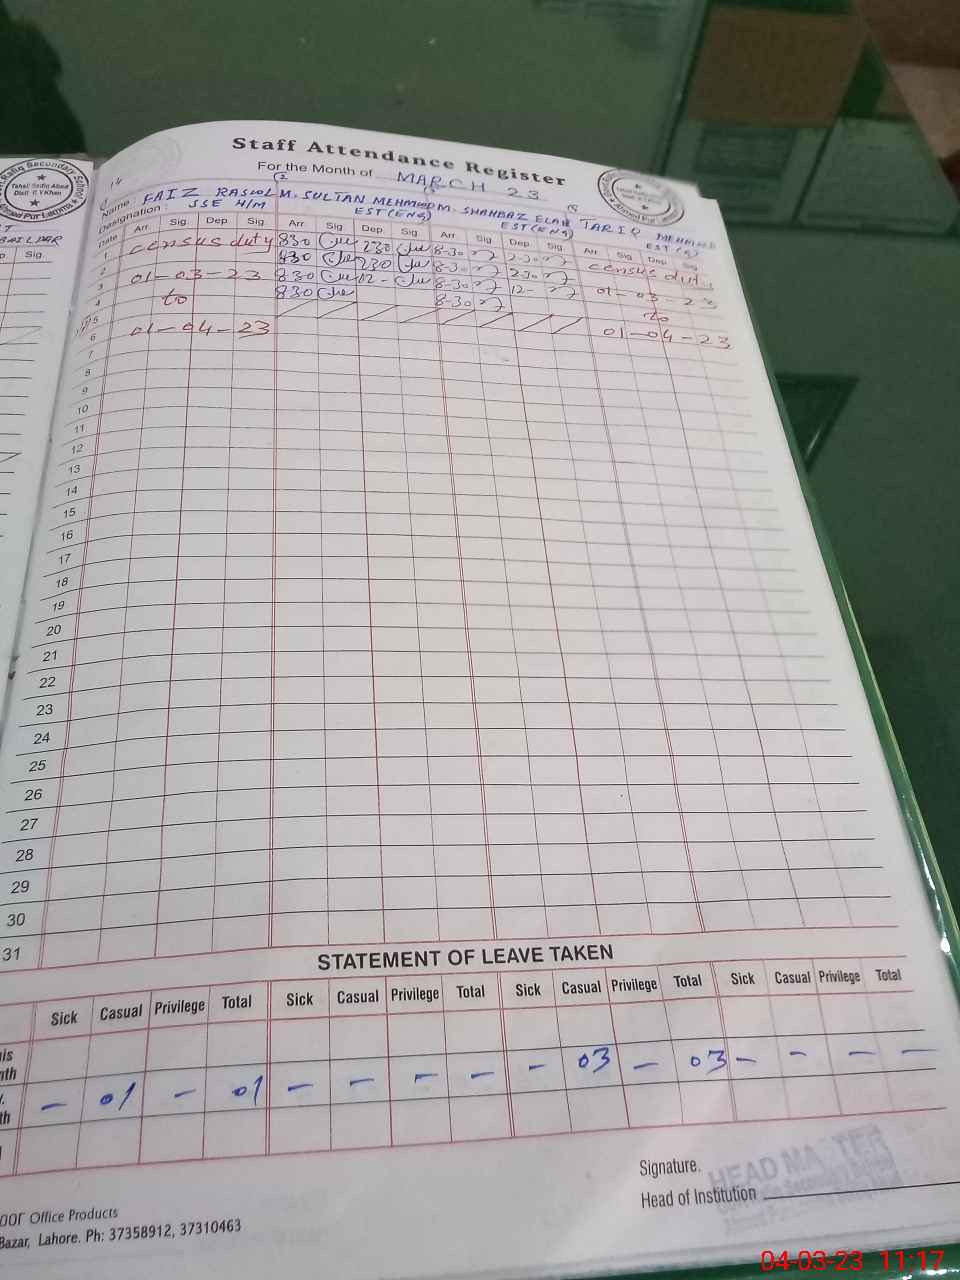 Staff Attendance Register
For the Month of MARCH 23
Name : FAIZ RASOOL M. SULTAN MEHMOOD M. SHAHBAZ ELAHI TARIQ MEHMOOD
Designation : SSE H/M EST(ENG) EST(ENG) EST
Date Arr Sig. Dep Sig Arr Sig Dep Sig. Arr Sig Dep Sig. Arr Sig. Dep Sig.
1 census duty 830 230 8-30 2-30 census duty
2 830 230 8-30 2-30
3 01-03-23 830 12- 8-30 12- 01-03-23
4 to 830 8-30 to
5
6 01-04-23 01-04-23
7
8
9
10
11
12
13
14
15
16
17
18
19
20
21
22
23
24
25
26
27
28
29
30
31
STATEMENT OF LEAVE TAKEN
Sick Casual Privilege Total Sick Casual Privilege Total Sick Casual Privilege Total Sick Casual Privilege Total
- 01 - 01 - - - - - 03 - 03 - - - -
Signature.
Head of Institution
HEAD MASTER
Office Products
Bazar, Lahore. Ph: 37358912, 37310463
Sig.
04-03-23 11:17